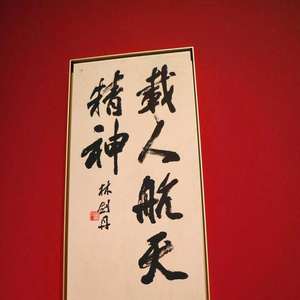 載人航天
精神
林剑丹